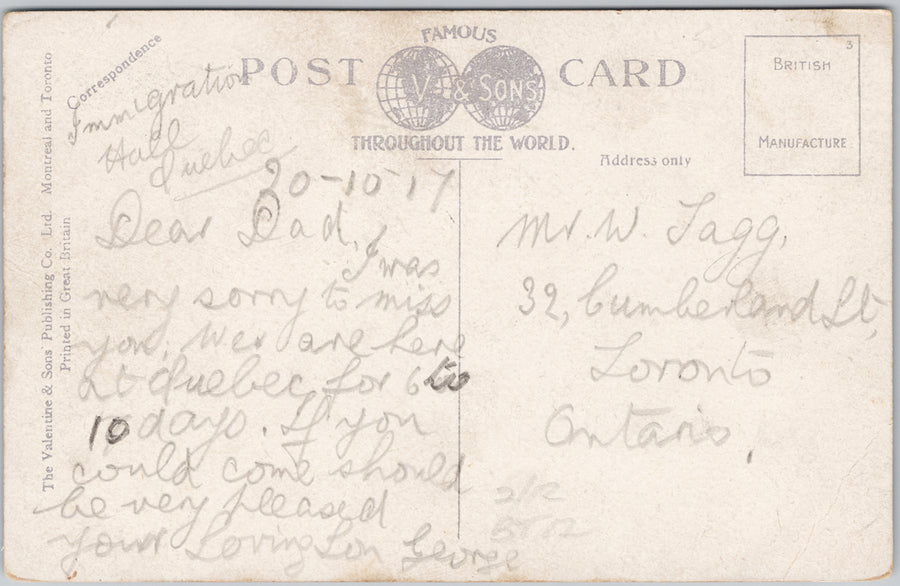 The Valentine & Sons' Publishing Co. Ltd. Montreal and Toronto
Printed in Great Britain
Correspondence
POST CARD
FAMOUS
V. & SONS
THROUGHOUT THE WORLD.
BRITISH
MANUFACTURE
3
Address only
Immigration
Hall
Quebec
20-10-17
Dear Dad,
I was
very sorry to miss
you. Wer are here
at Quebec for 6 to
10 days. If you
could come should
be very pleased
your Loving Son George
Mr. W. Tagg,
32, Cumberland St,
Toronto
Ontario